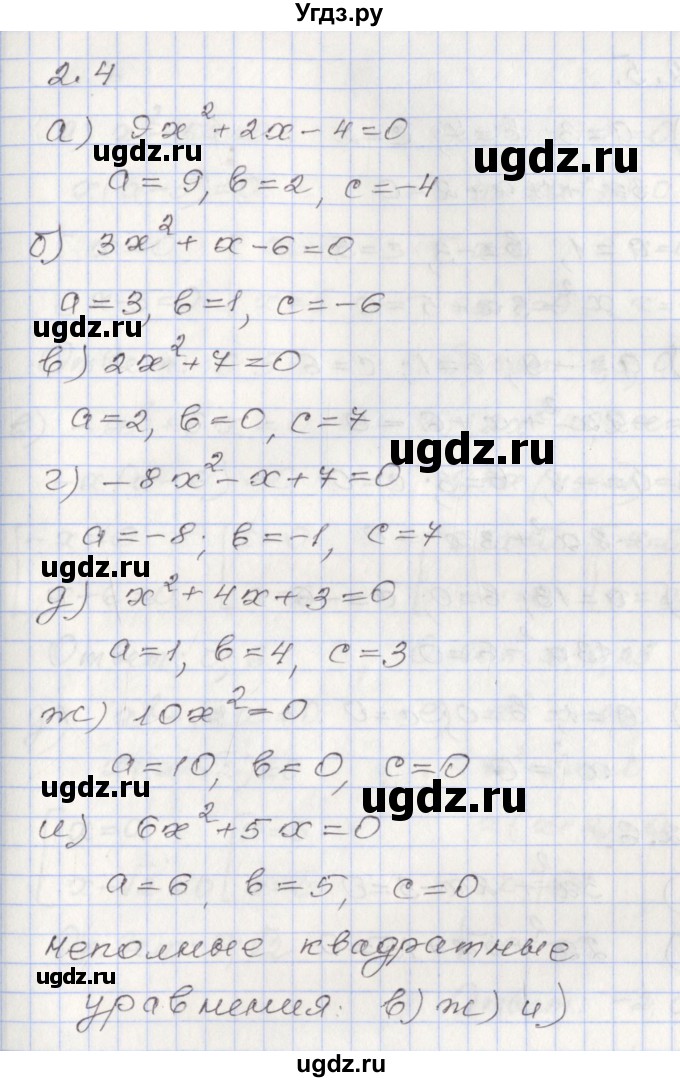 Угдз.ру
2.4
а) 9x²+2x-4=0
ugdz.ru
ugdz.ru
a=9, b=2, c=-4
б) 3x²+x-6=0
a=3, b=1, c=-6
ugdz.ru
в) 2x²+7=0
a=2, b=0, c=7
ugdz.ru
г) -8x²-x+7=0
a=-8; b=-1, c=7
ugdz.ru
д) x²+4x+3=0
a=1, b=4, c=3
ж) 10x²=0
a=10, b=0, c=0
ugdz.ru
ugdz.ru
и) 6x²+5x=0
a=6, b=5, c=0
неполные квадратные
ugdz.ru
уравнения: в) ж) и)
ugdz.ru